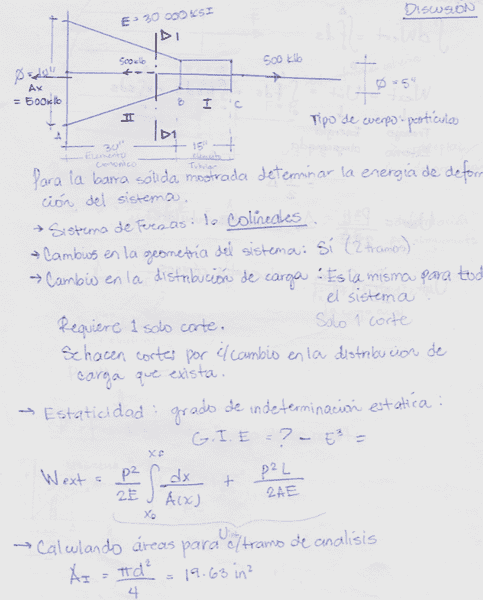 Discusión
E = 30 000 KSI
1
500klb
500 klb
Ø = 10"
Ax
= 500klb
Ø = 5"
A
B
I
C
II
1
Tipo de cuerpo: partículas
30"
15"
Elemento
cónico
Para la barra sólida mostrada determinar la energía de deforma
ción del sistema.
→ Sistema de Fuerzas: 1o Colineales.
→ Cambios en la geometría del sistema: Sí (2 tramos)
→ Cambio en la distribución de carga: Es la misma para tod
el sistema
Requiere 1 solo corte.
Solo 1 corte
Se hacen cortes por c/cambio en la distribucion de
carga que exista.
→ Estaticidad: grado de indeterminación estatica:
G.I.E = ? - E³ =
Wext = P²/2E ∫ x₀ xF dx/A(x) + P²L/2AE
U
→ Calculando áreas para c/tramo de analisis
A_I = πd²/4 = 19.63 in²